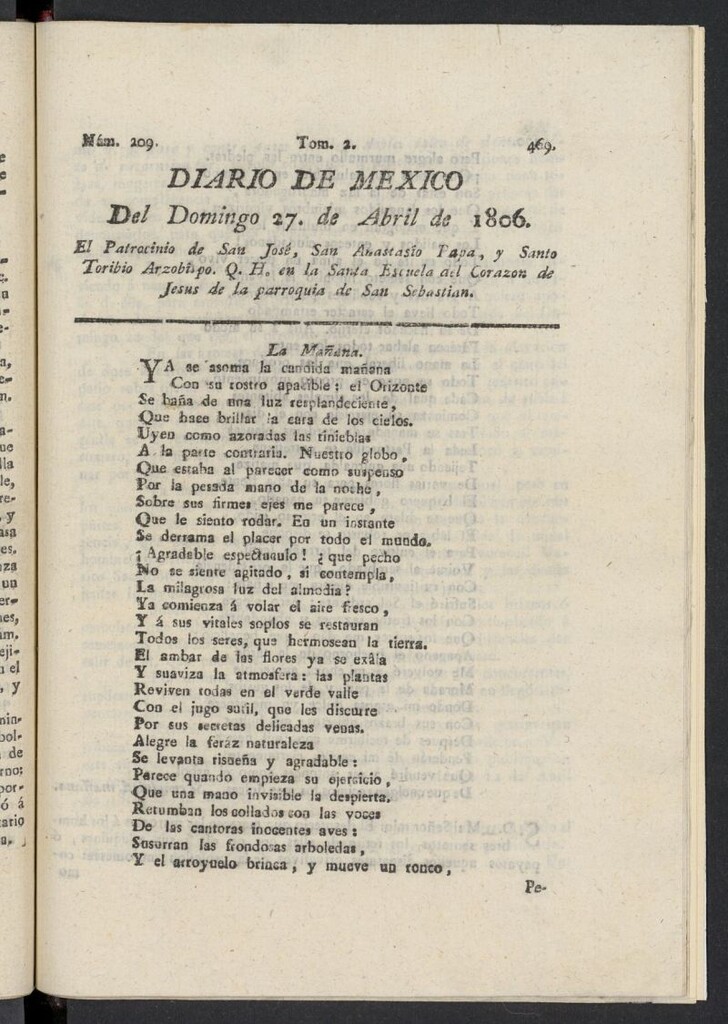 Núm. 209. Tom. 2. 469.
DIARIO DE MEXICO
Del Domingo 27. de Abril de 1806.
El Patrocinio de San José, San Anastasio Papa, y Santo
Toribio Arzobispo. Q. H. en la Santa Escuela del Corazon de
Jesus de la parroquia de San Sebastian.
La Mañana.
YA se asoma la candida mañana
Con su rostro apacible; el Orizonte
Se baña de una luz resplandeciente,
Que hace brillar la cara de los cielos.
Uyen como azoradas las tinieblas
A la parte contraria. Nuestro globo,
Que estaba al parecer como suspenso
Por la pesada mano de la noche,
Sobre sus firmes ejes me parece,
Que le siento rodar. En un instante
Se derrama el placer por todo el mundo.
¡Agradable espectaculo! ¿que pecho
No se siente agitado, si contempla,
La milagrosa luz del almodia?
Ya comienza á volar el aire fresco,
Y á sus vitales soplos se restauran
Todos los seres, que hermosean la tierra.
El ambar de las flores ya se exâla
Y suaviza la atmosfera: las plantas
Reviven todas en el verde valle
Con el jugo sutil, que les discurre
Por sus secretas delicadas venas.
Alegre la feráz naturaleza
Se levanta risueña y agradable:
Parece quando empieza su ejercicio,
Que una mano invisible la despierta.
Retumban los collados con las voces
De las cantoras inocentes aves:
Susurran las frondosas arboledas,
Y el arroyuelo brinca, y mueve un ronco,
Pe-